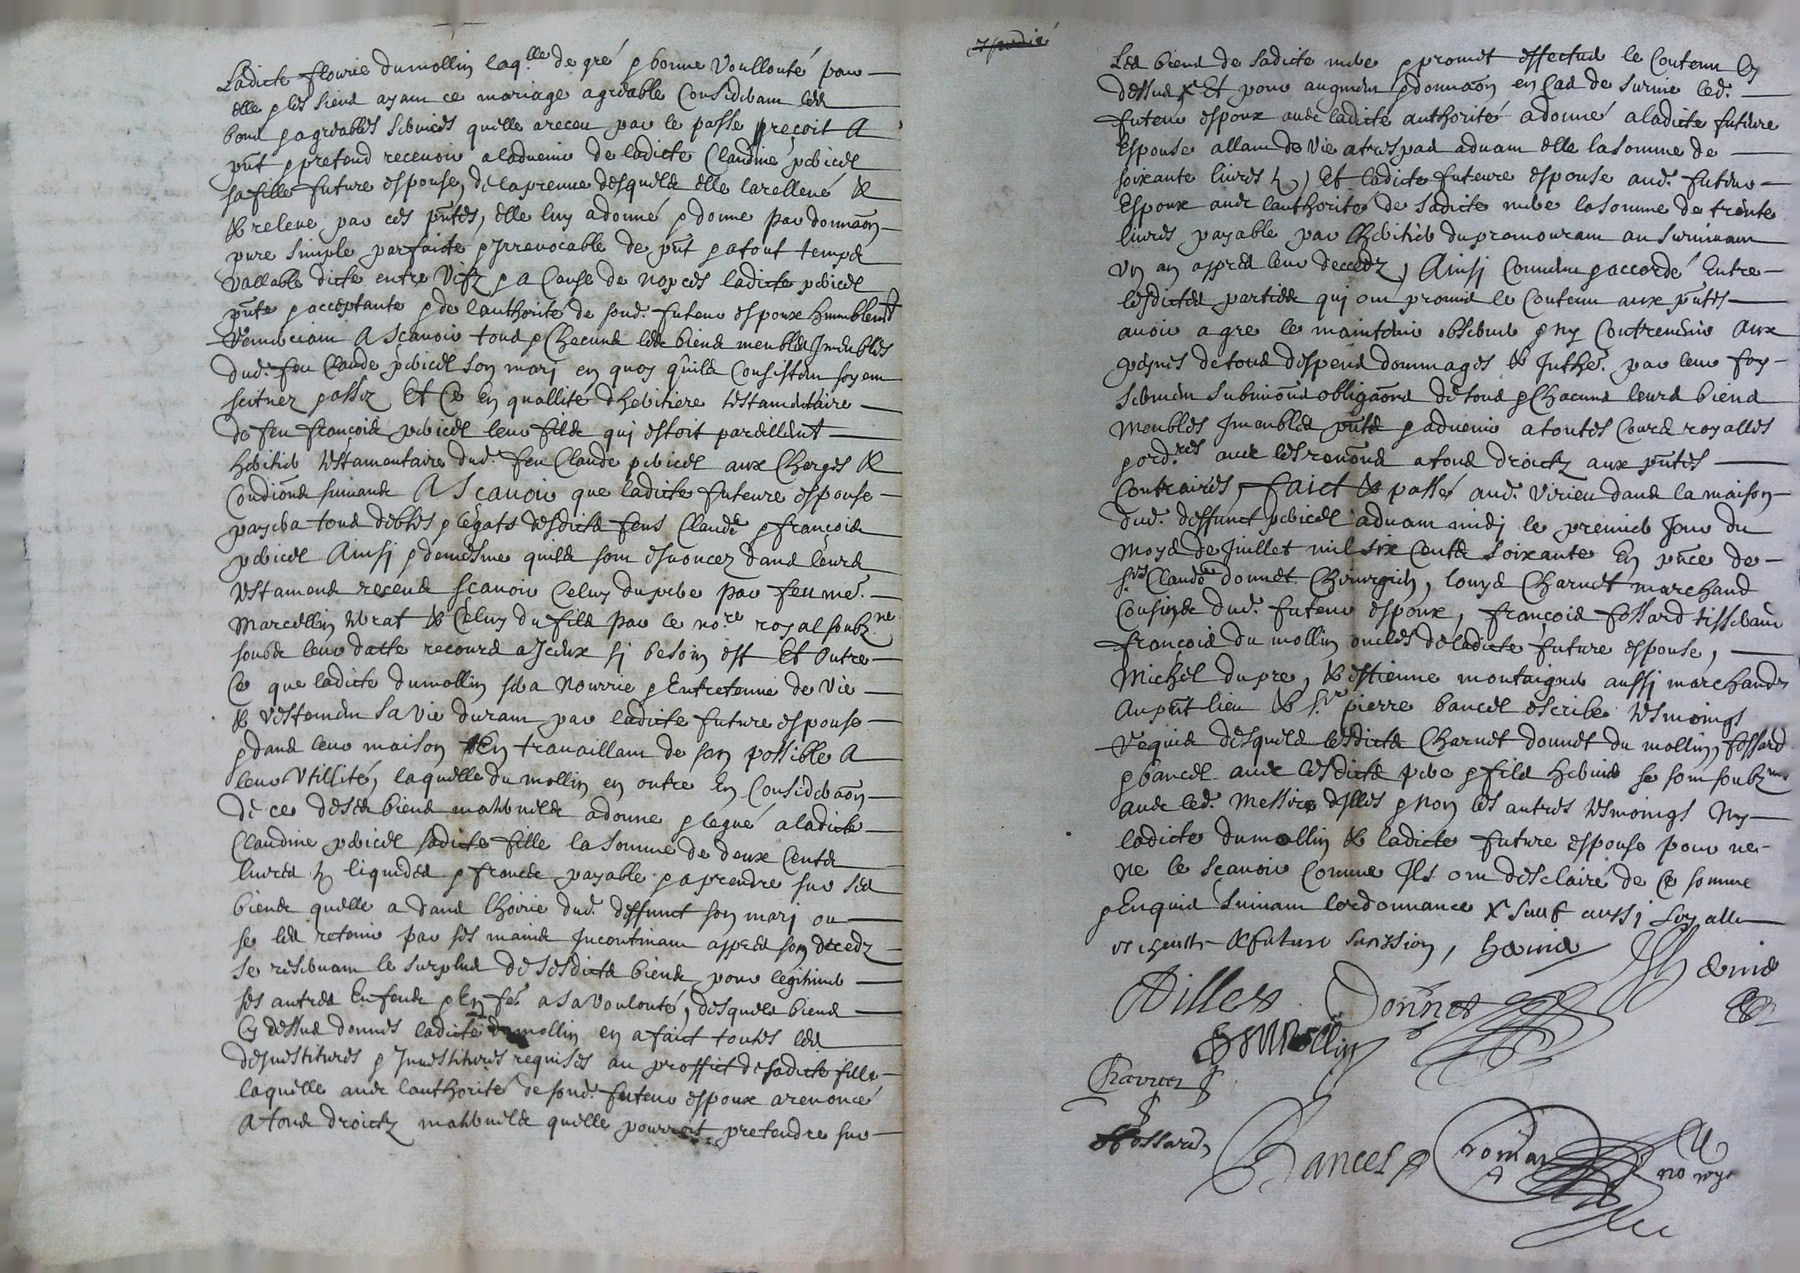 Ladicte flourie dumollin laq.lle de gré & bonne voullonté pour
elle & les siens ayant ce mariage agreable Considerant les
bons & agreables services quelle a receu par le passe reçoit A
pnt & pretend recevoir a ladvenir de ladicte Claudine
sa fille future espouse, de la preuve desquels elle la relleve &
& releve par ces pntes, elle luy a donné & donne par donnaon
pure simple parfaicte & Irrevocable de pnt & a tout temps
vallable dicte entre vifz & a Cause de nopces ladicte
pnte & acceptante & de lauthorité de sond. futeur espoux humblement
Remerciant A Scavoir tous & Checuns les biens meubles Imeubles
dud. feu Claude son mary en quoy quils Consistent soyent
scituez & assiz Et Ce En quallité dheritiere testamentaire
de feu françois leur fils qui estoit pareillemt
heritier testamentaire dud. feu Claude aux Charges &
Condions suivants A Scavoir que ladicte futeure espouse
payera tous debtes & legats desdicts feus Claude & françois
Ainsi & demesme quils sont esnoncez dans leurs
testaments receus scavoir Celuy du pere par feu me.
Marcellin & Celuy du fils par le no.re royal soubz.ne
soubz leur datte recours a Iceux si besoin est Et Outre
Ce que ladicte dumollin sera nourrie & Entretenue de vie
& vestement sa vie durant par ladicte future espouse
& dans leur maison En travaillant de son possible A
leur Utillité, laquelle du mollin en outre En Consideraon
de ce de ses biens maternels a donne & legué a ladicte
Claudine sadicte fille la somme de deux Cents
livres liquides & francs payable & a prendre sur ses
biens quelle a dans lhoirie dud. deffunct son mary ou
se les retenir par ses mains Incontinant appres son decedz
se reservant le surplus de sesdicts biens pour legitimer
ses autres Enfans & En fe. a sa voulonté, desquels biens
Cy dessus donnes ladicte dumollin en a faict toutes les
desvestitures & Investitures requises au proffict de sadicte fille
laquelle avec lauthorité de sond. futeur espoux a renoncé
A tous droictz maternels quelle pourroit pretendre sur
Les biens de sadicte mere & promet effectuer le Contenu Cy
dessus X Et pour augment & donnaon en Cas de survie led.
futeur espoux avec ladicte authorité a donné a ladicte future
Espouse allant de vie a trespas advant elle la somme de
soixante livres , Et ladicte futeure espouse aud. futeur
Espoux avec lauthorite de sadicte mere la somme de trente
livres payable par lheritier du premourant au survivant
Un an appres leur decedz, Ainsi Convenu & accordé Entre
lesdictes parties qui ont promis le Contenu aux pntes
avoir a gre le maintenir observer & ny Contrevenir Aux
peynes de tous despens dommages & Inthe. par leur foy
serment submions obligaons de tous & Chacuns leurs biens
Meubles Imeubles pnts & advenir a toutes Cours royalles
& ord.res avec les renons a tous droictz aux pntes
Contraires, faict & passé aud. virieu dans la maison
dud. deffunct advant midy le premier Jour du
Moys de Juillet mil six Cents soixante En pnce de
Claude donnet Chirurgien, louys Charvet marchand
Cousins dud. futeur espoux, françois fossard tisserand
françois du mollin oncles de ladicte future espouse,
Michel dupre, & estienne montaignier aussi marchands
Au pnt lieu & s.r pierre bancel escribe tesmoings
Requis desquels lesdicts Charvet donnet du mollin, fossard
& bancel avec lesdicts pere & fils se sont soubz.nes
avec led. Messire dilles & non les autres tesmoings Ny
ladicte dumollin & ladicte future espouse pour ne
ne le scavoir Comme Ils ont desclairé de Ce sommes
& Enquis suivant lordonnance X sauf aussi
& future
Dilles Donnet
dumollin
Charvet
fossard
Bancel
no roy